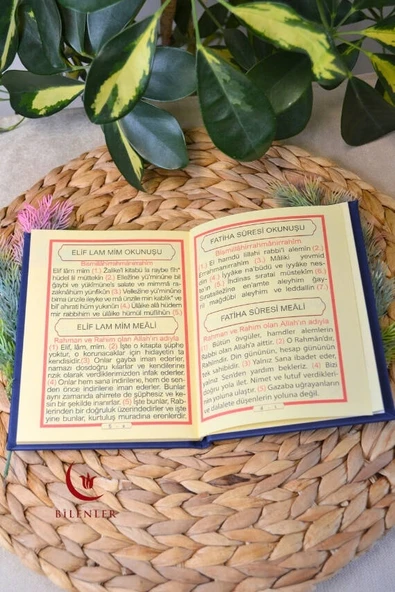 ELİF LAM MİM OKUNUŞU
Bismillâhirrahmânirrahîm
Elif lâm mîm (1.) Zâlikel kitâbü lâ raybe fîh*
hüdel lil müttekîn (2.) Ellezîne yü'minûne bil
ğaybi ve yükîmûnes salate ve mimmâ ra-
zaknâhüm yünfikûn (3.) Vellezîne yü'minûne
bima ünzile ileyke ve mâ ünzile min kablik* ve
bil' ahırati hüm yukınûn (4.) Ülâike alâ hüdem
mir rabbihim ve ülâike hümül müflihûn (5.)
ELİF LAM MİM MEÂLİ
Rahman ve Rahim olan Allah'ın adıyla
(1) Elif, lâm, mîm. (2) İşte o kitapta şüphe
yoktur, o korunacaklar için hidayetin ta
kendisidir.(3) Onlar gayba iman ederler,
namazı dosdoğru kılarlar ve kendilerine
rızık olarak verdiklerimizden infâk ederler.
(4) Onlar hem sana indirilene, hem de sen-
den önce indirilene iman ederler. Bunlar
aynı zamanda ahirete de şüphesiz ve ke-
sin bir şekilde inanırlar. (5) İşte bunlar, Rab-
lerinden bir doğruluk üzerindedirler ve işte
yine bunlar, kurtuluş muradına erenlerdir.
FATİHA SÛRESİ OKUNUŞU
Bismillâhirrahmânirrahîm
El hamdü lillahi rabbi'l alemin (2.)
Errahmanerrahîm (3.) Mâliki yevmid
din (4.) İyyâke na'büdü ve iyyâke nes-
taîn (5.) İhdinas sıratal müstekîm (6.)
Sıratallezîne en'amte aleyhim ğay-
ril mağdûbi aleyhim ve leddallîn (7.)
FATİHA SÛRESİ MEÂLİ
Rahman ve Rahim olan Allah'ın adıyla
(1) Bütün övgüler, hamdler alemlerin
Rabbi olan Allah'a aittir. (2) O Rahmân'dır,
Rahîm'dir. Din gününün, hesap gününün
tek sahibidir. (3) Yalnız Sana ibadet eder,
yalnız Senden yardım bekleriz. (4) Bizi
doğru yola ilet. Nimet ve lutuf verdikleri-
nin yoluna ulaştır. (5) Gazaba uğrayanların
ve dalalete düşenlerin yoluna değil.
BİLENLER